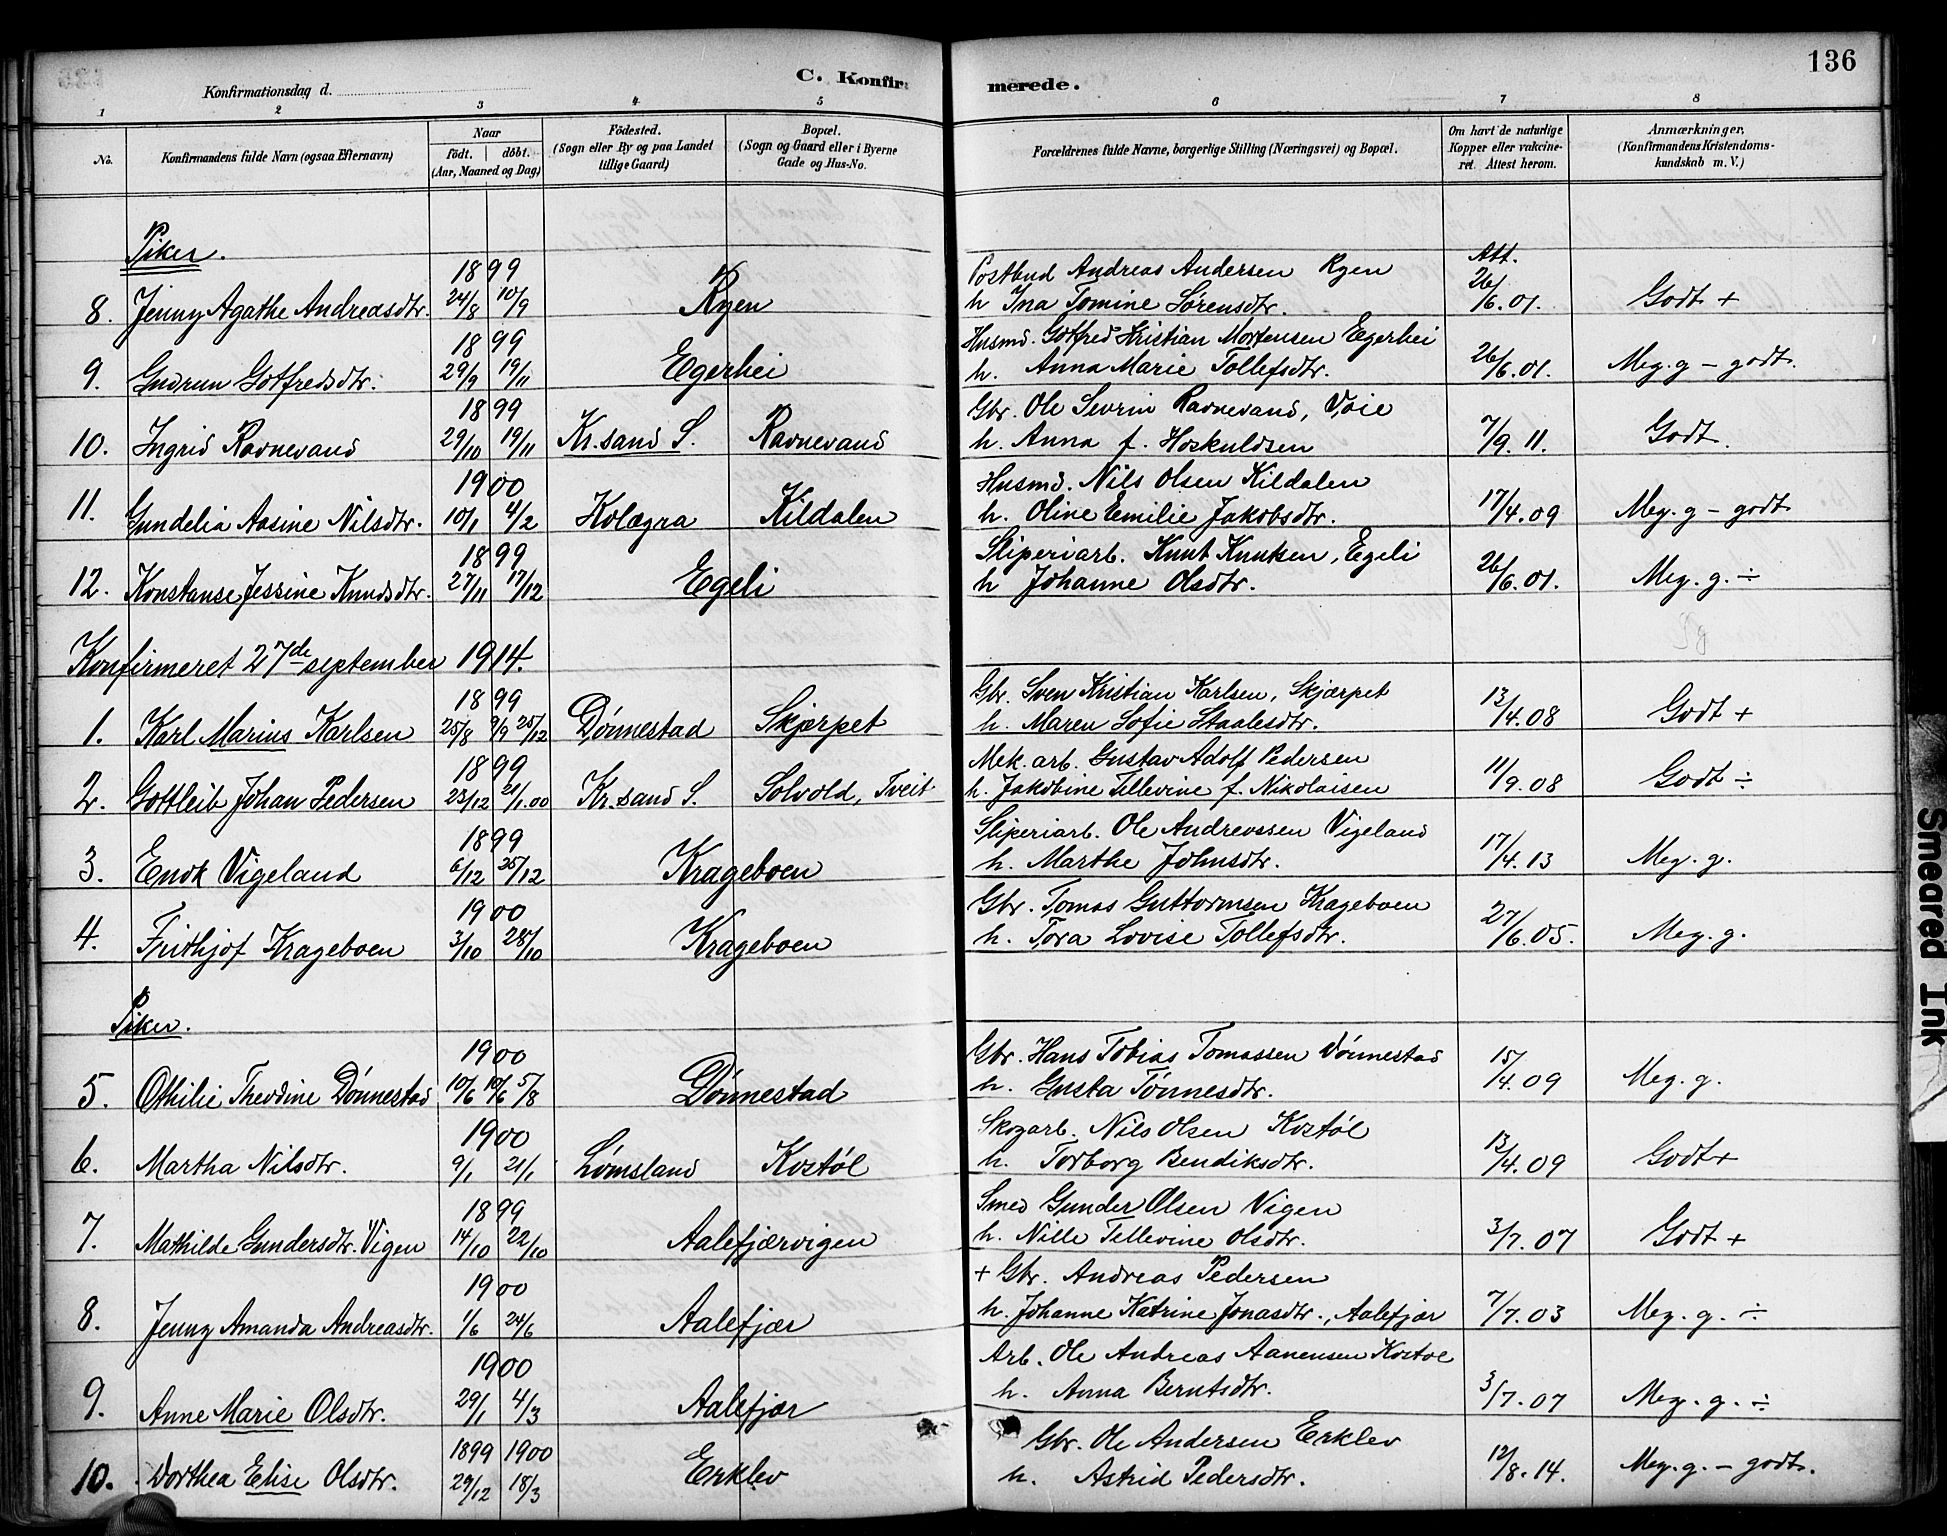 136
C. Konfirmerede.
Konfirmationsdag d.
1 2 3 4 5 6 7 8
No.
Konfirmandens fulde Navn (ogsaa Efternavn)
Naar
født. døbt.
(Aar, Maaned og Dag)
Fødested.
(Sogn eller By og paa Landet
tillige Gaard)
Bopæl.
(Sogn og Gaard eller i Byerne
Gade og Hus-No.
Forældrenes fulde Navne, borgerlige Stilling (Næringsvei) og Bopæl.
Om havt de naturlige
Kopper eller vakcine-
ret. Attest herom.
Anmærkninger,
(Konfirmandens Kristendoms-
kundskab m. V.)
Piker.
1899 Postbud Andreas Andersen Ryen Att.
8. Jenny Agathe Andreasdtr. 24/8 10/9 Ryen h Ina Tomine Sørensdtr. 26/6.01. Godt +
1899 Husmd. Gotfred Kristian Mortensen Egerhei
9. Gudrun Gotfredsdtr. 29/9 19/11 Egerhei h. Anna Marie Tollefsdtr. 26/6.01. Meg. g - godt.
1899 Gbr. Ole Sevrin Ravnevand, Voie
10. Ingrid Ravnevand 29/10 19/11 Kr.sand S. Ravnevand h. Anna f. Hoskuldsen 7/9.11. Godt.
1900 Husmd. Nils Olsen Kildalen
11. Gundelia Aasine Nilsdtr. 10/1 4/2 Kolægra Kildalen h. Oline Emilie Jakobsdtr. 17/4.09 Meg. g - godt
1899 Sliperiarb. Knut Knutsen, Egeli
12. Konstanse Jessine Knudsdtr. 27/11 17/12 Egeli h Johanne Olsdtr. 26/6.01. Meg. g. ÷
Konfirmeret 27de september 1914.
1899 Gbr. Sven Kristian Karlsen, Skjærpet
1. Karl Marius Karlsen 25/8 9/9 25/12 Dønnestad Skjærpet h. Maren Sofie Staalesdtr. 13/4.08 Godt +
1899 Mek. arb. Gustav Adolf Pedersen
2. Gottleib Johan Pedersen 23/12 21/1.00 Kr.sand S. Solvold, Tveit h. Jakobine Tellevine f. Nikolaisen 11/9.08 Godt ÷
1899 Sliperiarb. Ole Andreassen Vigeland
3. Enok Vigeland 6/12 25/12 Krageboen h. Marthe Johnsdtr. 17/4.13 Meg. g.
1900 Gbr. Tomas Guttormsen Krageboen
4. Frithjof Krageboen 3/10 28/10 Krageboen h. Tora Lovise Tollefsdtr. 27/6.05. Meg. g.
Piker.
1900 Gbr. Hans Tobias Tomassen Dønnestad
5. Othilie Theodine Dønnestad 10/6 10/6 5/8 Dønnestad h. Gusta Tønnesdtr. 15/4.09 Meg. g.
1900 Skogarb. Nils Olsen Kostøl
6. Martha Nilsdtr. 9/1 21/1 Lømsland Kostøl h. Torborg Bendiksdtr. 13/4.09 Godt +
1899 Smed Gunder Olsen Vigen
7. Mathilde Gundersdtr. Vigen 14/10 22/10 Aalefjærvigen h. Nille Tellevine Olsdtr. 3/7.07 Godt +
1900 + Gbr. Andreas Pedersen
8. Jenny Amanda Andreasdtr. 1/6 24/6 Aalefjær h. Johanne Katrine Jonasdtr., Aalefjær 7/7.03 Meg. g. ÷
1900 Arb. Ole Andreas Aanensen Kostøl
9. Anne Marie Olsdtr. 29/1 4/3 Aalefjær h. Anna Berntsdtr. 3/7.07 Meg. g. ÷
1899 1900 Gbr. Ole Andersen Erklev
10. Dorthea Elise Olsdtr. 29/12 18/3 Erklev h. Astrid Pedersdtr. 12/8.14. Meg. g. - godt.
Smeared Ink